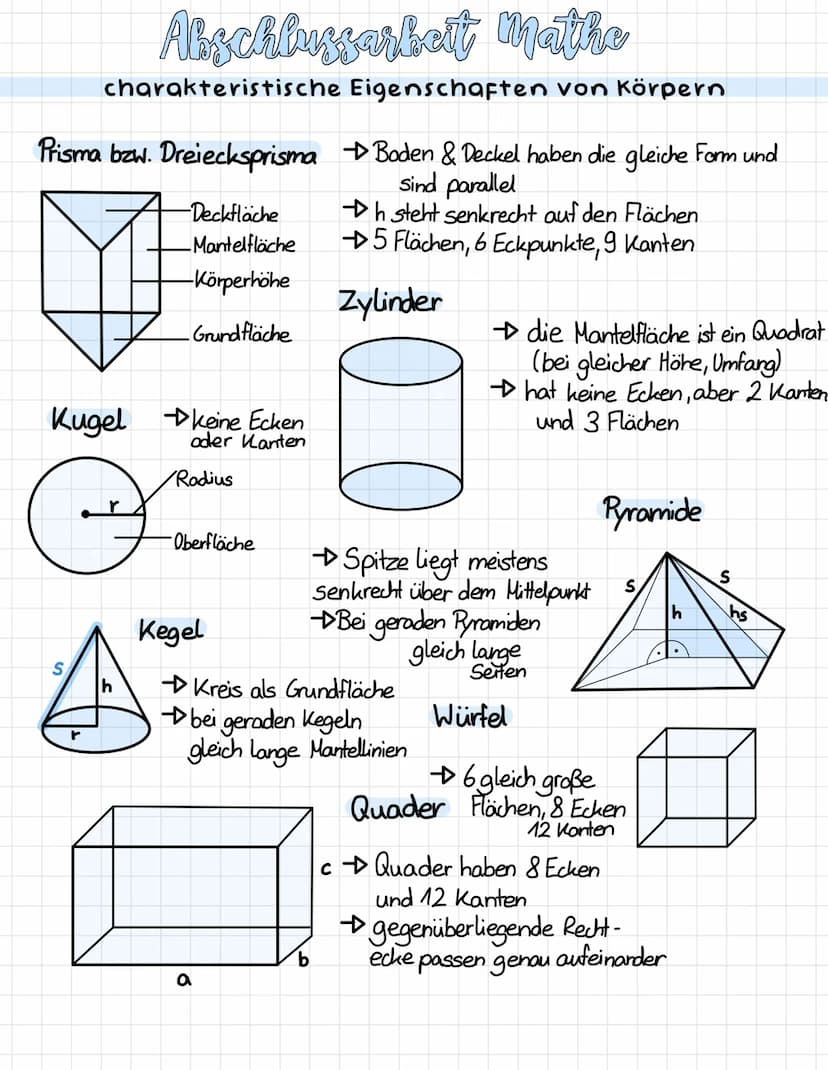 Abschlussarbeit Mathe
charakteristische Eigenschaften von Körpern
Prisma bzw. Dreiecksprisma
→ Boden & Deckel haben die gleiche Form und
sind parallel
→ h steht senkrecht auf den Flächen
→ 5 Flächen, 6 Eckpunkte, 9 Kanten
Deckfläche
Mantelfläche
Körperhöhe
Grundfläche
Zylinder
→ die Mantelfläche ist ein Quadrat
(bei gleicher Höhe, Umfang)
→ hat keine Ecken, aber 2 Kanten
und 3 Flächen
Kugel
→ keine Ecken
oder Kanten
Radius
r
Oberfläche
Pyramide
→ Spitze liegt meistens
senkrecht über dem Mittelpunkt
→ Bei geraden Pyramiden
gleich lange
Seiten
s
s
h
hs
Kegel
s
h
r
→ Kreis als Grundfläche
→ bei geraden Kegeln
gleich lange Mantellinien
Würfel
→ 6 gleich große
Flächen, 8 Ecken
12 Kanten
Quader
c
→ Quader haben 8 Ecken
und 12 Kanten
→ gegenüberliegende Recht-
ecke passen genau aufeinander
b
a